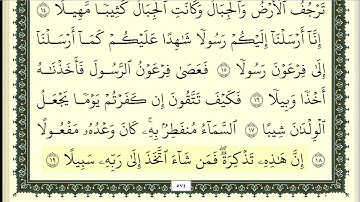 تَرْجُفُ ٱلْأَرْضُ وَٱلْجِبَالُ وَكَانَتِ ٱلْجِبَالُ كَثِيبًا مَّهِيلًا ١٤
إِنَّآ أَرْسَلْنَآ إِلَيْكُمْ رَسُولًا شَٰهِدًا عَلَيْكُمْ كَمَآ أَرْسَلْنَآ
إِلَىٰ فِرْعَوْنَ رَسُولًا ١٥ فَعَصَىٰ فِرْعَوْنُ ٱلرَّسُولَ فَأَخَذْنَٰهُ
أَخْذًا وَبِيلًا ١٦ فَكَيْفَ تَتَّقُونَ إِن كَفَرْتُمْ يَوْمًا يَجْعَلُ
ٱلْوِلْدَٰنَ شِيبًا ١٧ ٱلسَّمَآءُ مُنفَطِرٌۢ بِهِۦ ۚ كَانَ وَعْدُهُۥ مَفْعُولًا
١٨ إِنَّ هَٰذِهِۦ تَذْكِرَةٌ ۖ فَمَن شَآءَ ٱتَّخَذَ إِلَىٰ رَبِّهِۦ سَبِيلًا ١٩
٥٧٤